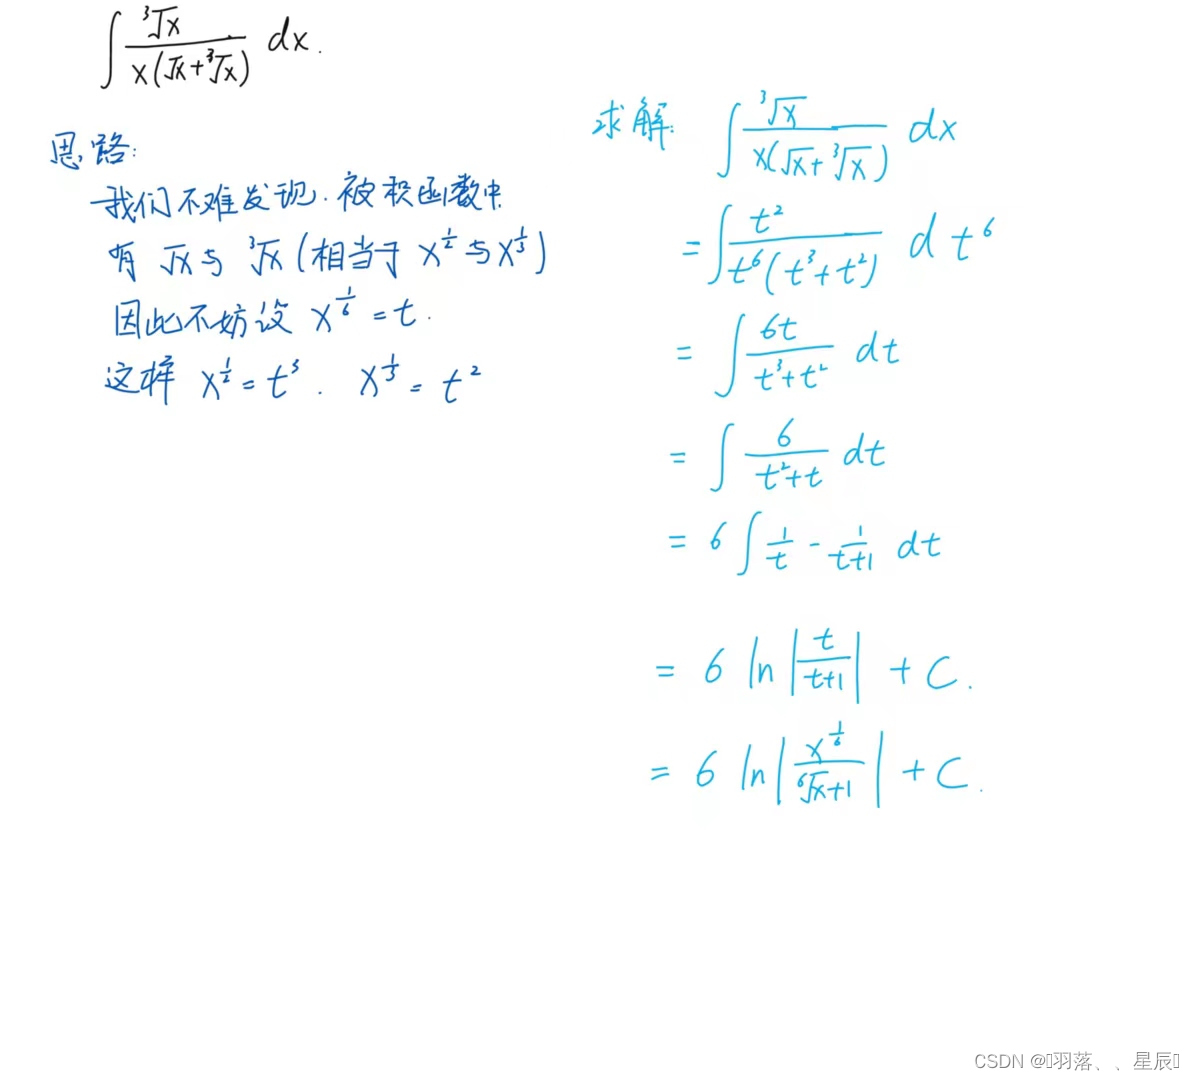 ∫ ∛x / x(√x+∛x) dx.
思路:
我们不难发现.被积函数中
有 √x与 ∛x (相当于 x^{1/2}与x^{1/3})
因此不妨设 x^{1/6} = t.
这样 x^{1/2} = t³. x^{1/3} = t²
求解: ∫ ∛x / x(√x+∛x) dx
= ∫ t² / t⁶(t³+t²) d t⁶
= ∫ 6t / t³+t² dt
= ∫ 6 / t²+t dt
= 6 ∫ 1/t - 1/t+1 dt
= 6 ln | t / t+1 | + C.
= 6 ln | x^{1/6} / ⁶√x+1 | + C.
CSDN @羽落、、星辰